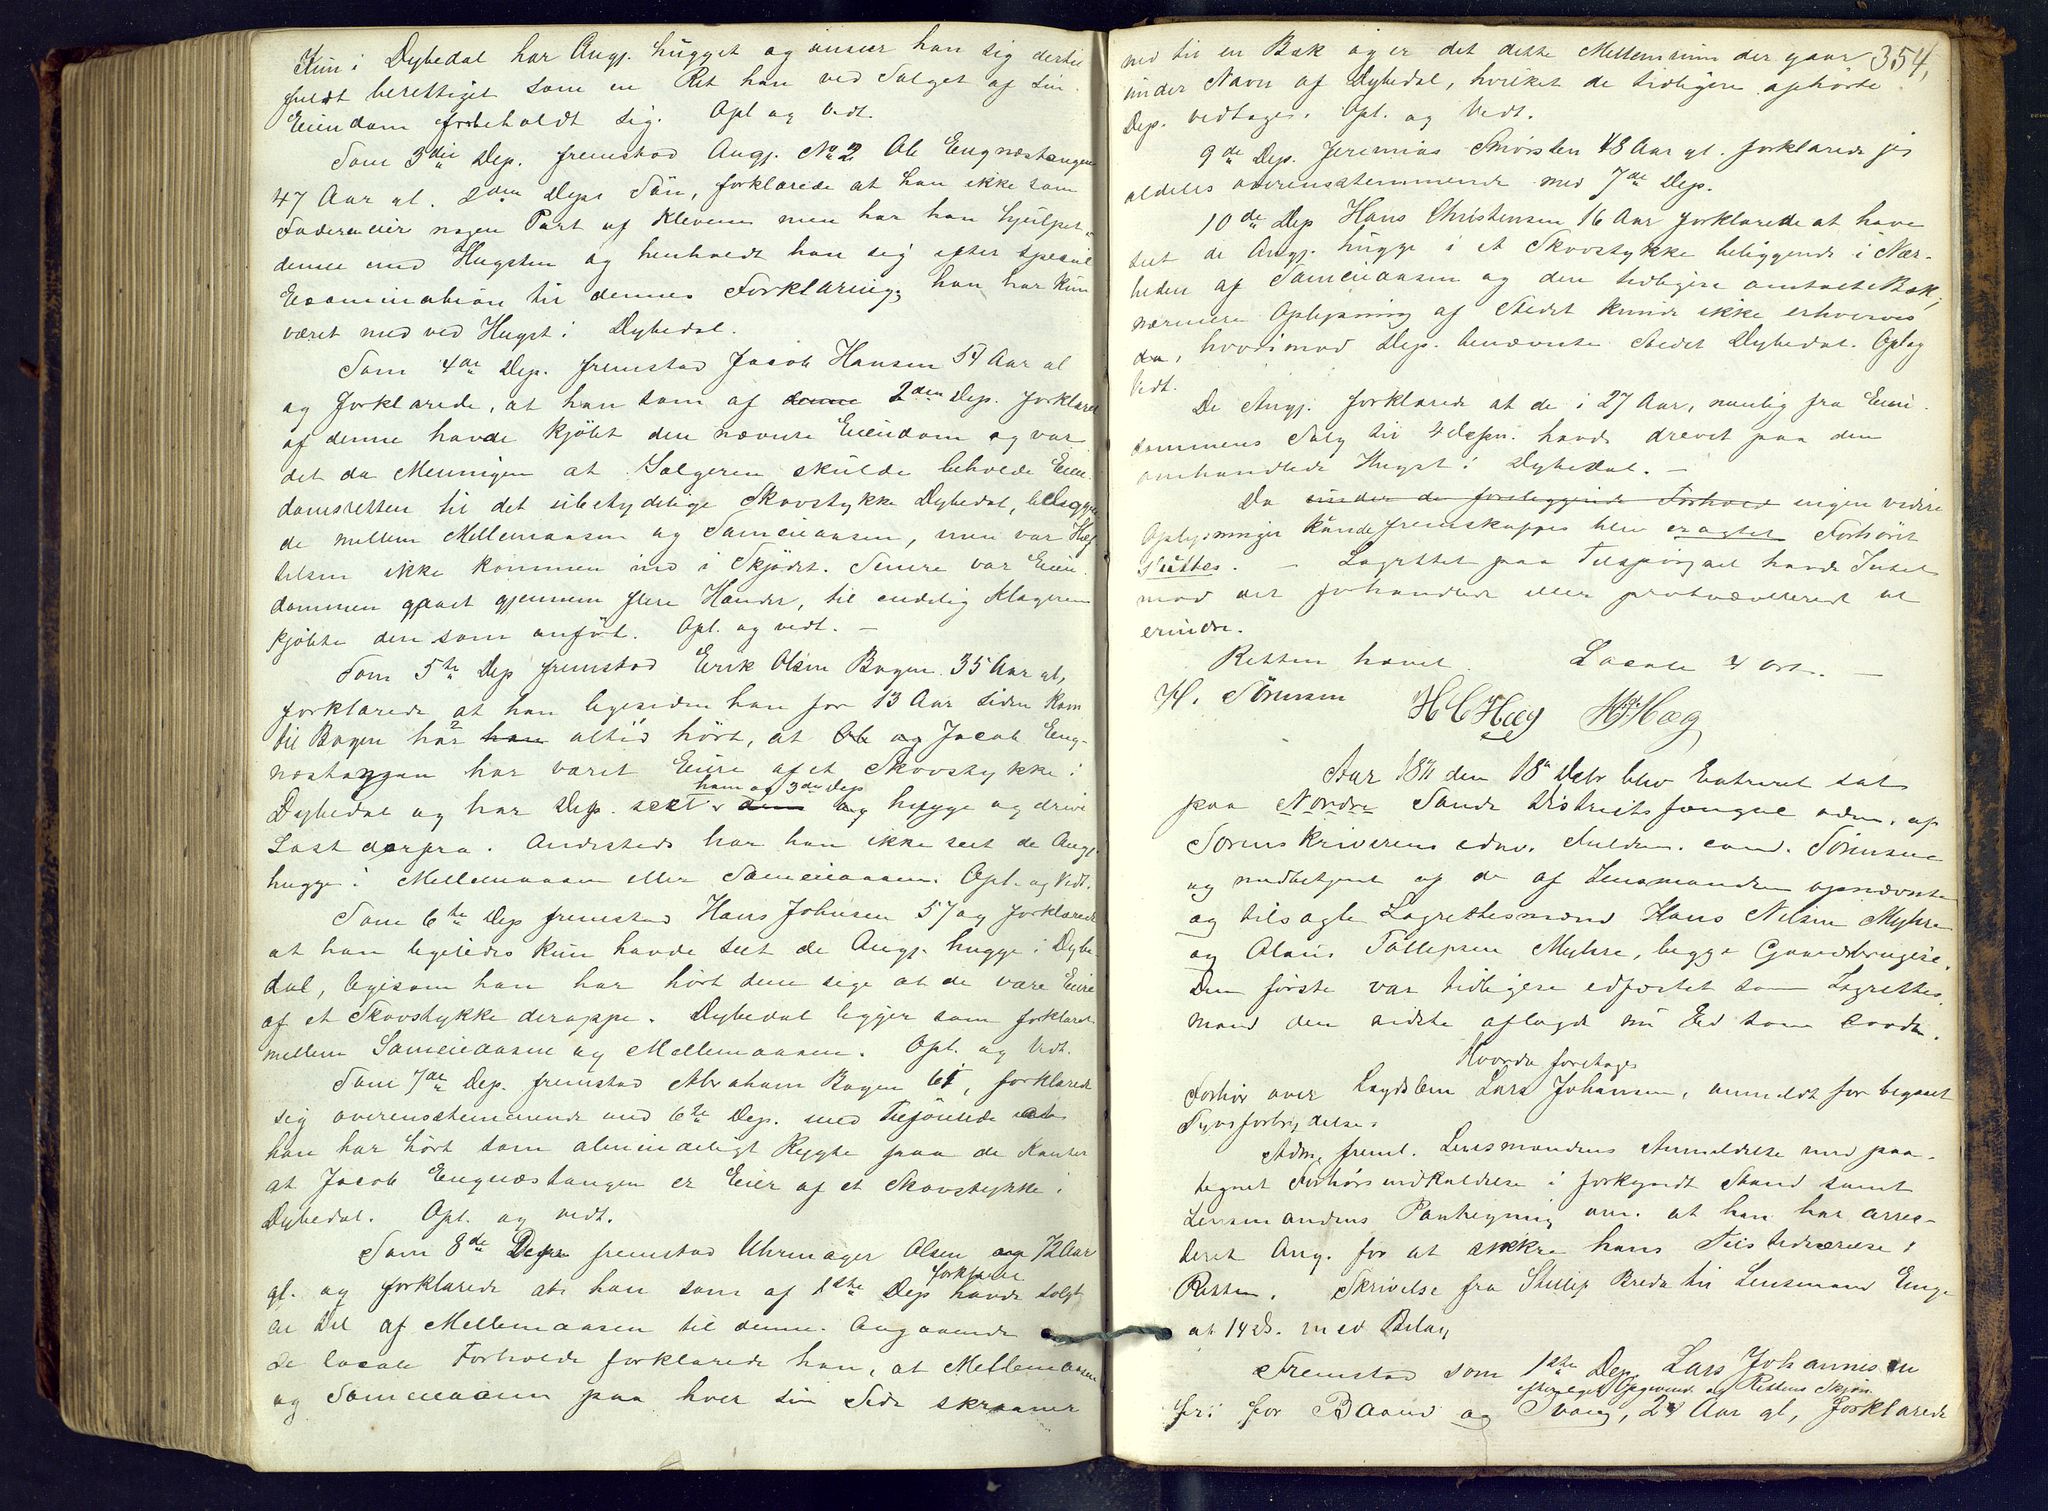 Kun i Dybedal har Angj. hugget og anseer han sig dertil
fuldt berettiget som en Ret han ved Salget af sin
Eiendom forbeholdt sig. Opl og Vedt.
Som 3die Dep. fremstod Angj. No 2 Ole Engnæstangen
47 Aar gl. 2den Deps Søn, forklarede at han ikke som
Faderen eier nogen Part af Kleven men har han hjulpet
denne med Hugsten og henholdt han sig efter speciel
Examination til dennes Forklaring, han har kun
været med ved Hugst i Dybedal.
Som 4de Dep. fremstod Jacob Hansen 54 Aar gl
og forklarede, at han som af denne 2den Dep. forklaret
af denne havde kjøbt den nævnte Eiendom og var
det da Meningen at Sælgeren skulde beholde Eien-
domsretten til det ubetydelige Skovstykke Dybedal, beliggen
de mellem Mellemaasen og Sameiaasen, men var Hef
telsen ikke kommen ind i Skjødet. Senere var Eien
dommen gaaet gjennem flere Hænder, til endelig Klageren
kjøbte den som anført. Opl. og vedt. —
Som 5te Dep fremstod Erik Olsen Bogen 35 Aar gl,
forklarede at han ligesiden han for 13 Aar siden kom
til Bogen har han altid hørt, at Ole og Jacob Eng-
næstangen har været Eiere af et Skovstykke i
ham og 3die Dep
Dybedal og har Dep. seet dem og hugge og drive
Last derfra. Andetsteds har han ikke seet de Angj.
hugge i Mellemaasen eller Sameiaasen. Opl. og Vedt.
Som 6te Dep fremstod Hans Johnsen 57 og forklarede
at han ligeledes kun havde seet de Angj. hugge i Dybe-
dal, ligesom han har hørt dem sige at de vare Eiere
af et Skovstykke deroppe. Dybedal ligger som forklaret
mellem Sameiaasen og Mellemaasen. Opl. og Vedt.
Som 7de Dep. fremstod Abraham Bogen 61, forklarede
sig overensstemmende med 6te Dep. med Tilføiende at
han har hørt som almindeligt Rygte paa de Kanter
at Jacob Engnæstangen er Eier af et Skovstykke i
Dybedal. Opl. og vedt.
Som 8de Dep fremstod Uhrmager Olsen 72 Aar
forklaret
gl. og forklarede at han som af 1ste Dep havde solgt
en Del af Mellemaasen til denne. Angaaende
de locale Forholde forklarede han, at Mellemaasen
og Sameiaasen paa hver sin Side skraaner
354,
ned til en Bæk og er det dette Mellemrum der gaar
under Navn af Dybedal, hvilket de tidligere aphørte
Dep. vedtager. Opl. og Vedt.
9de Dep. Jeremias 48 Aar gl. forklarede sig
aldeles overensstemmende med 7de Dep.
10de Dep Hans Christensen 16 Aar forklarede at have
seet de Angj. hugge i et Skovstykke beliggende i Nær-
heden af Sameiaasen og den tidligere omtalte Bæk,
nærmere Oplysning af Stedet kunde ikke erhverves
da, hvorimod Dep. benævnte Stedet Dybedal. Opl og
Vedt.
De Angj. forklarede at de i 27 Aar, nemlig fra Eien-
dommens Salg til 4 Depn. havde drevet paa den
omhandlede Hugst i Dybedal. —
Da under de foreliggende Forhold ingen videre
Oplysninger kunde fremskaffes blev eragtet Forhøret
Sluttes. — Lagrettet paa Tilspørgsel havde Intet
mod det forhandlede eller protocollerede at
erindre.
Retten hævet. Locale 4 ort. —
H. Sörensen H C Hæg H Hæg
Aar 1871 den 18de Debr blev Extraret sat
paa Nordre Sande Distriktsfængsel adm. af
Sorenskriverens edsv. Fuldm. cand. Sörensen
og medbetjent af de af Lensmanden opnævnte
og tilsagte Lagrettesmænd Hans Nilsen Myhre
og Olaus Tollepsen Myhre, begge Gaardbrugere.
Den første var tidligere edfæstet som Lagrettes-
mand den sidste aflagde nu Ed som saadan.
Hvorda foretoges
Forhør over Lagdslem Lars Johansen, anmeldt for begaaet
Tyvsforbrydelse.
Adm. freml. Lensmandens Anmeldelse med paa-
tegnet Forhørsindkaldelse i forkyndt Stand samt
Lensmandens Paategning om at han har arres-
teret Ang. for at sikkre hans Tilstedeværelse i
Retten. Skrivelse fra Phillip Breda til Lensmand Enge
at 14 ds. med Bilag.
Fremstod som 1ste Dep. Lars Johannesen
efter eget Opgivende og Rettens Skjøn
fri for Baand og Tvang, 24 Aar gl, forklarede